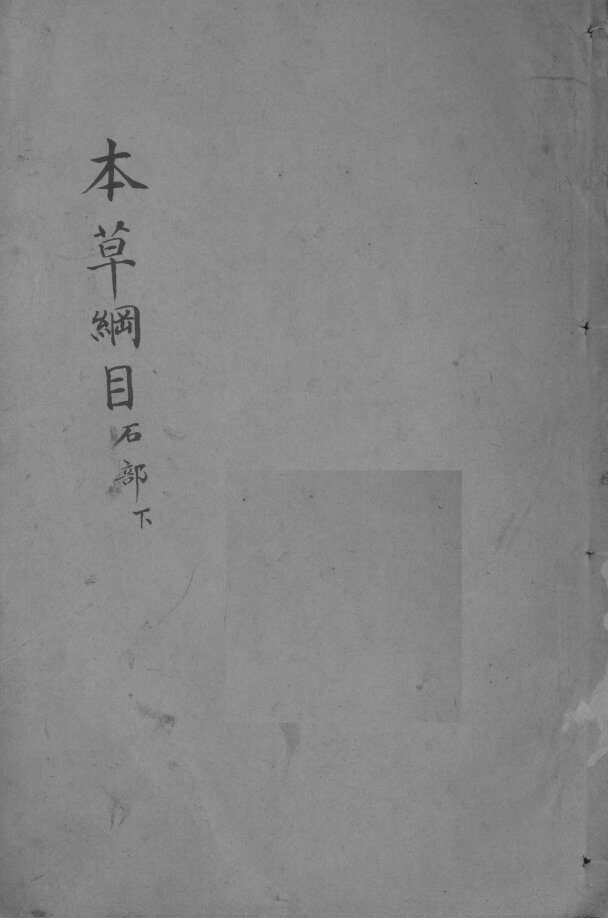 本草綱目石部下